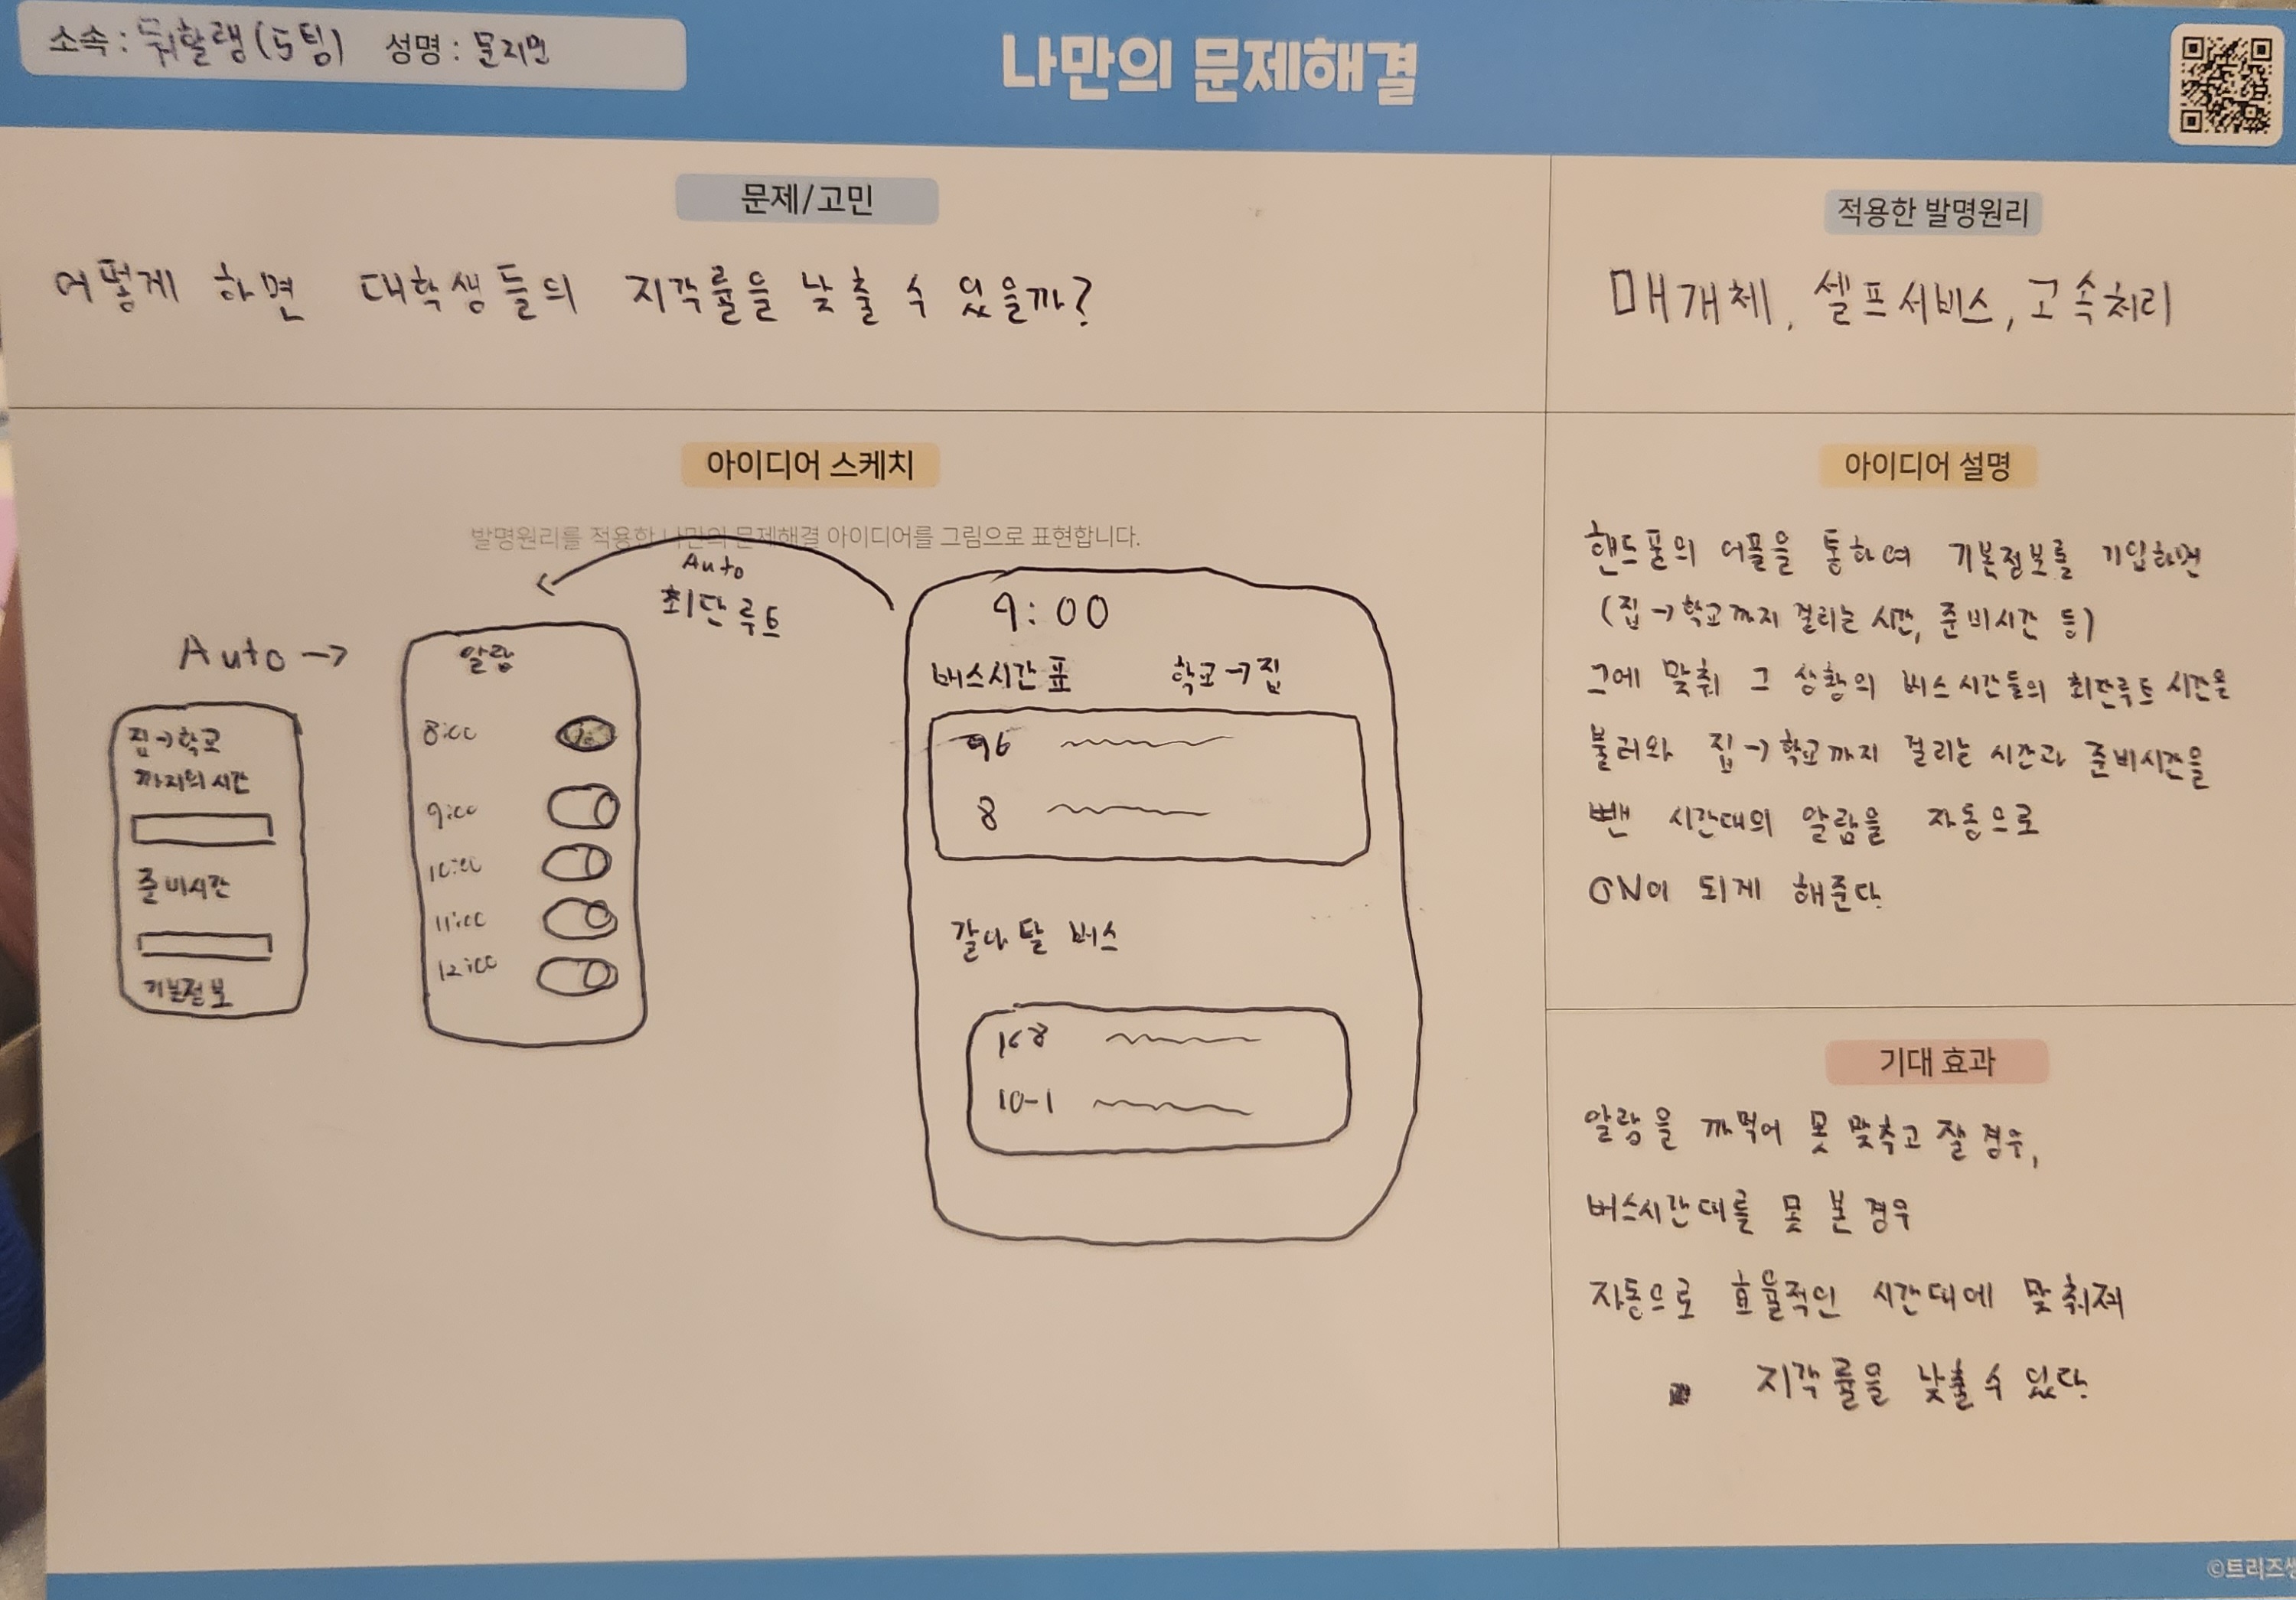 소속 : 뭐할램(5팀) 성명 : 문지민
나만의 문제해결
문제/고민
어떻게 하면 대학생들의 지각률을 낮출 수 있을까?
적용한 발명원리
매개체, 셀프서비스, 고속처리
아이디어 스케치
발명원리를 적용한 나만의 문제해결 아이디어를 그림으로 표현합니다.
Auto
최단루트
Auto →
집→학교
까지의 시간
준비시간
기본정보
알람
8:00
9:00
10:00
11:00
12:00
9:00
버스시간표 학교→집
96
8
갈아탈 버스
168
10-1
아이디어 설명
핸드폰의 어플을 통하여 기본정보를 기입하면
(집→학교까지 걸리는 시간, 준비시간 등)
그에 맞춰 그 상황의 버스시간들의 최단루트 시간을
불러와 집→학교까지 걸리는 시간과 준비시간을
뺀 시간대의 알람을 자동으로
ON이 되게 해준다.
기대 효과
알람을 까먹어 못 맞추고 잘 경우,
버스시간대를 못 본 경우
자동으로 효율적인 시간대에 맞춰줘
지각률을 낮출 수 있다.
©트리즈